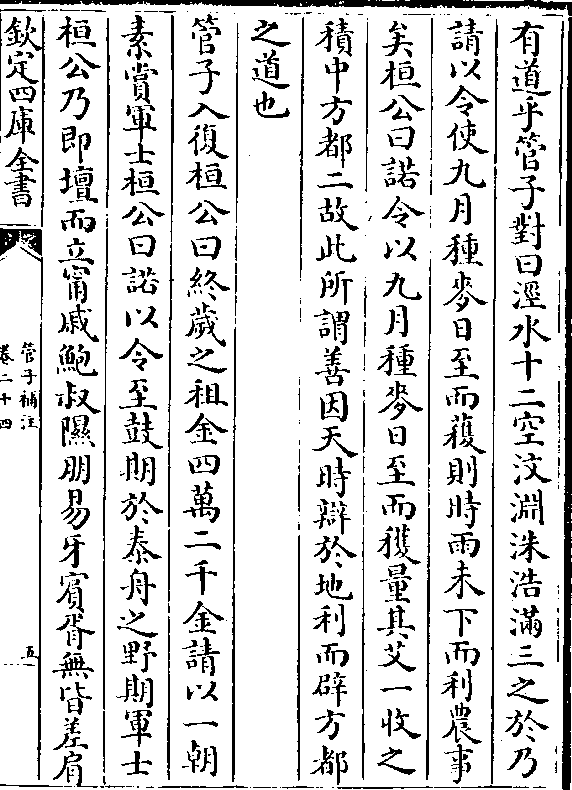 有道乎管子對曰涇水十二空汶淵洙浩滿三之於乃
請以令使九月種麥日至而穫則時雨未下而利農事
矣桓公曰諾令以九月種麥日至而穫量其艾一收之
積中方都二故此所謂善因天時辯於地利而辟方都
之道也
管子入復桓公曰終歲之租金四萬二千金請以一朝
素賞軍士桓公曰諾以令至鼓期於泰舟之野期軍士
桓公乃即壇而立甯戚鮑叔隰朋易牙賓胥無皆差肩
欽定四庫全書
管子補注
卷二十四
五